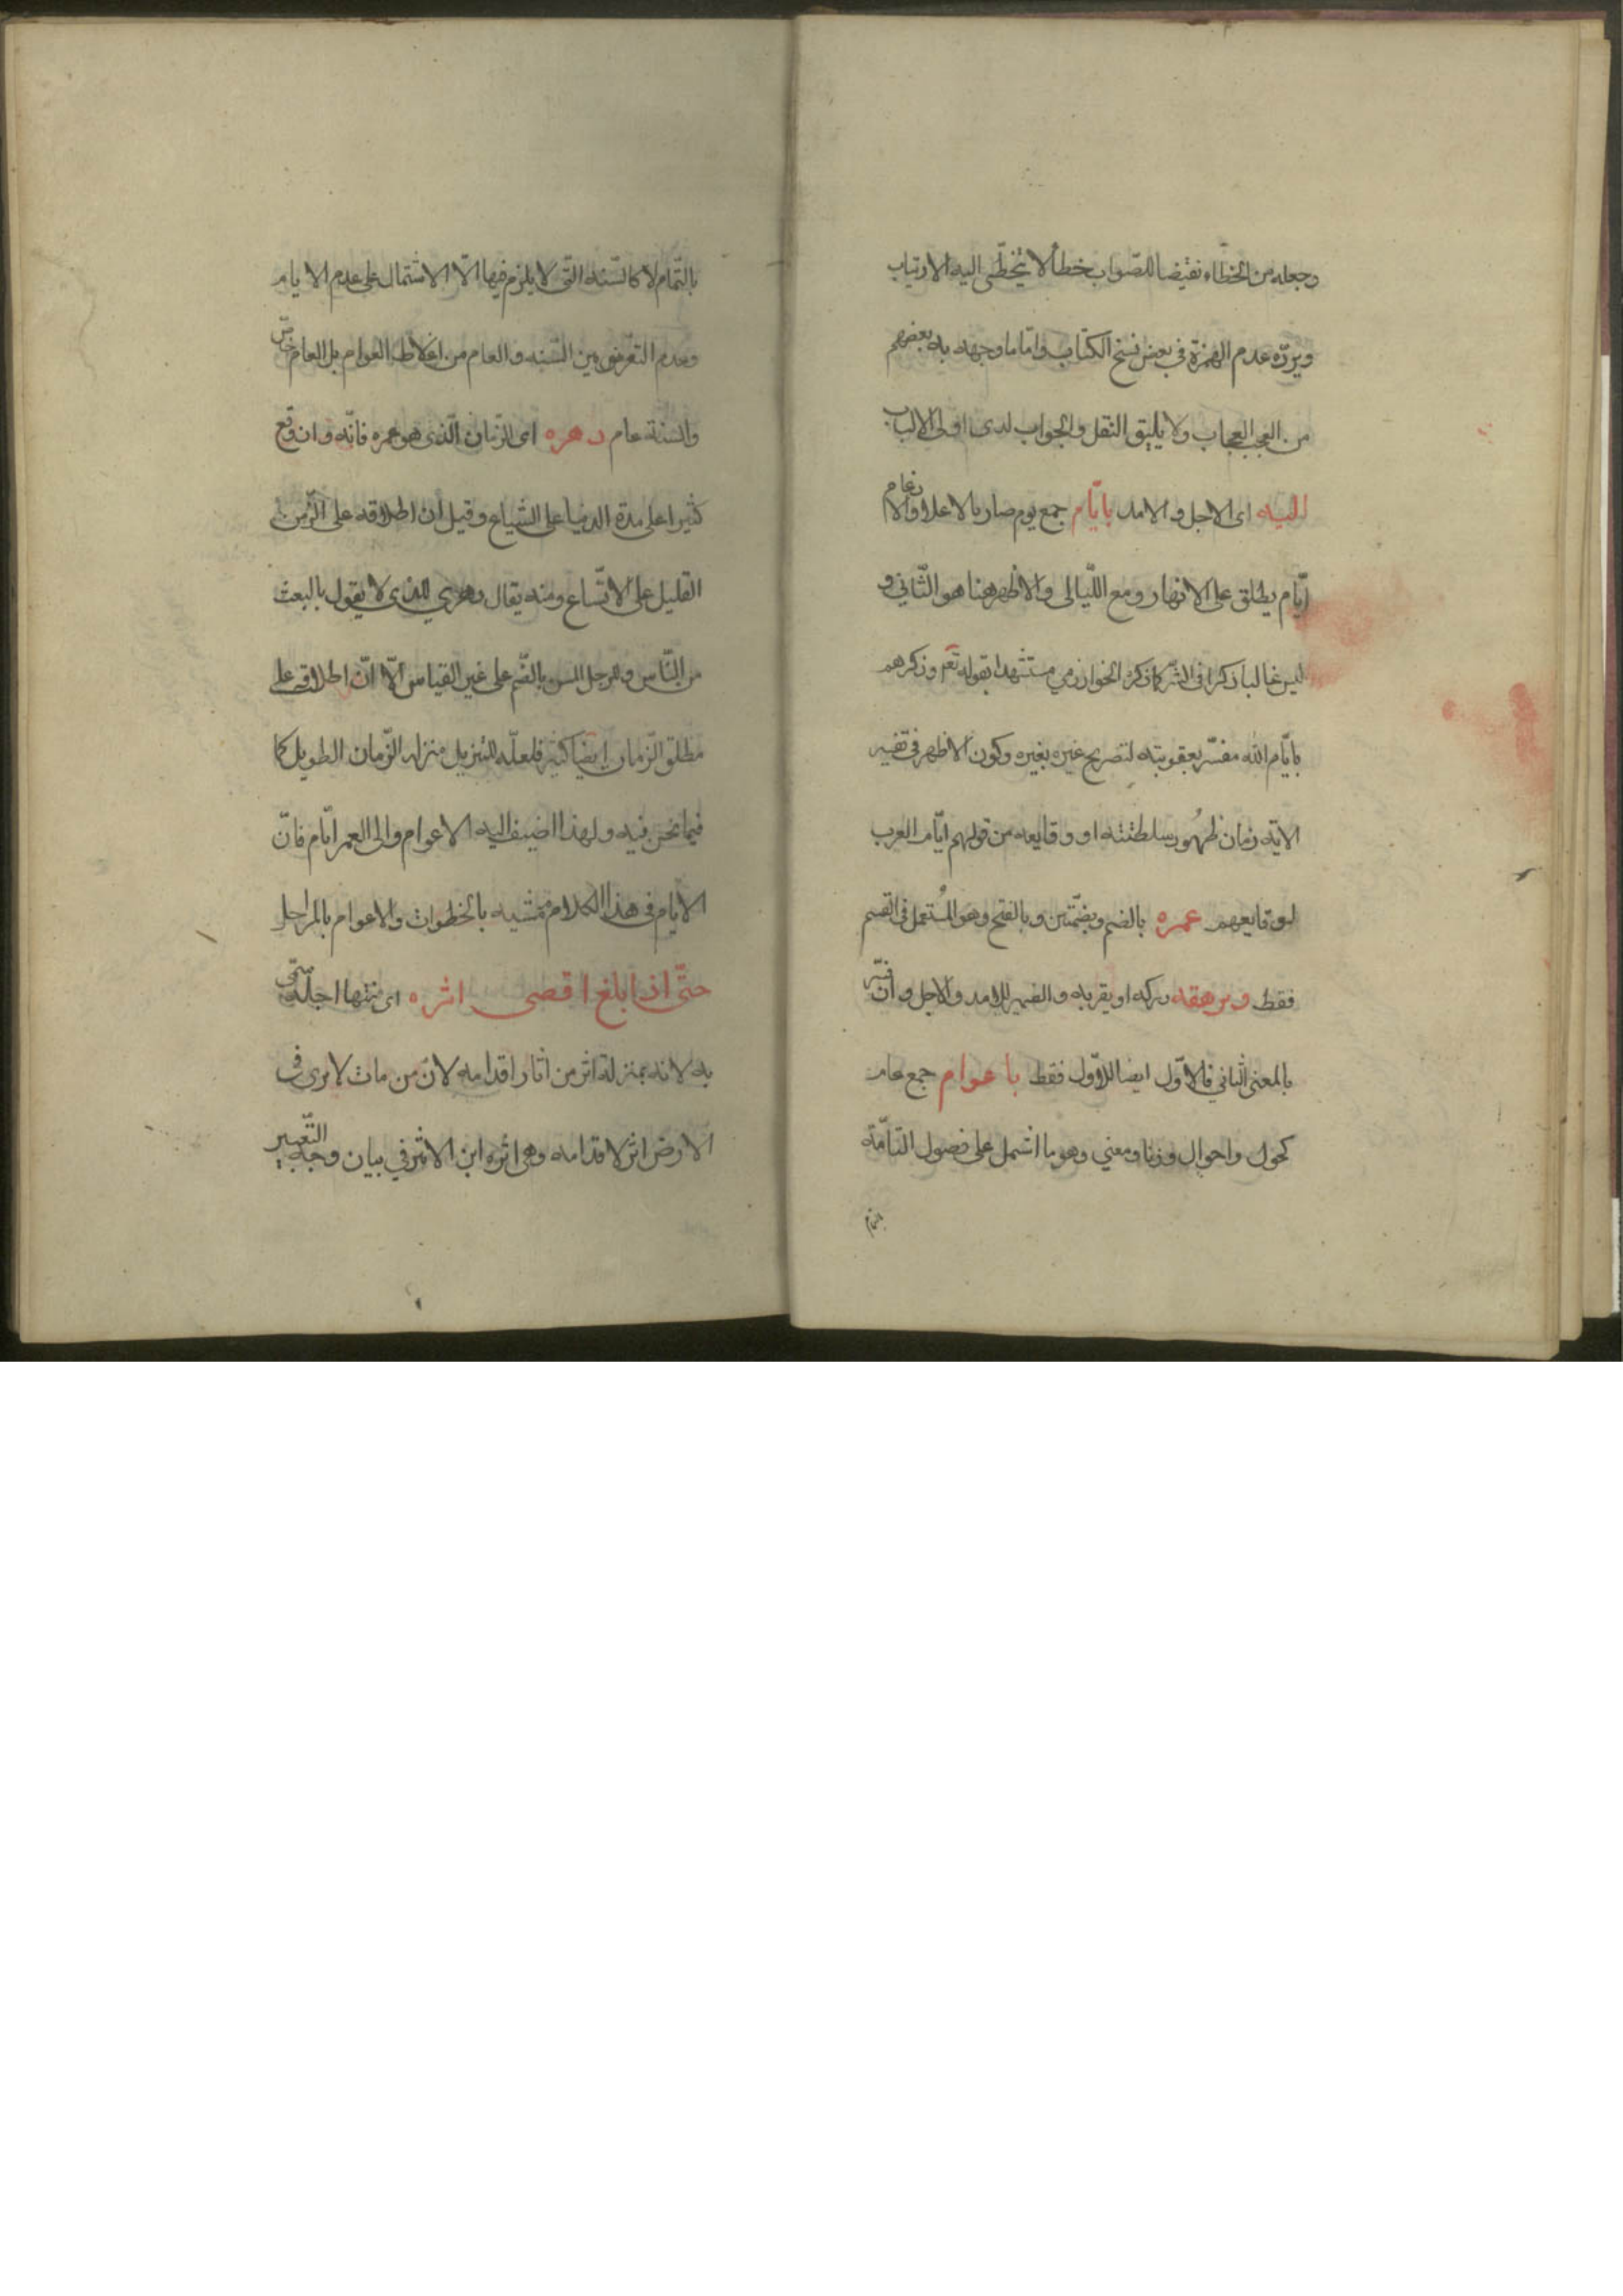 وجعله من الخطاء نقيضا للصّواب خطأ لا يُخطّى اليه الارتياب
ويردّه عدم الهمزة في بعض نسخ الكتاب وامّا ما وجهه به بعضهم
من العجب العجاب ولا يليق النقل والجواب لدى اولى الالباب
اليه اى الاجل والامد بايّام جمع يوم صار بالاعلال والادغام
ايّام يطلق على الانهار ومع اللّيالى والاظهر هنا هو الثّاني و
ليس غالبا ذكرا فى الشّر كما ذكره الخوارزمي مستشهدا بقوله تعم وذكرهم
بايّام الله مفسّر بعقوبته لتصريح غيره بغيره وكون الاظهر فى تفسير
الاية زمان ظهُور سلطنته او وقايعه من قولهم ايّام العرب
لوقايعهم عمره بالضم وبضمّتين وبالفتح وهو المُستعمل فى القسم
فقط ويرهقه يدركه او يقربه والضمير للامد والاجل وان فسّر
بالمعنى الثاني فالاوّل ايضا للاوّل فقط باعوام جمع عام
كحول واحوال وزنا ومعني وهو ما اشمل على فصول التامّة
بالتمام
بالتّمام لا كالسّنه التّى لا يلزم فيها الّا الاشتمال على عدم الايام
وعدم التفريق بين السّنه والعام من اغلاط العوام بل العام خاصّ
والسنة عام دهره اى الزمان الّذى هو عمره فانّه وان وقع
كثيرا على مدة الدنيا على الشياع وقيل ان اطلاقه على الزّمن
القليل على الاتّساع ومنه يقال دهري للذى لا يقول بالبعث
من النّاس وللرجل المسن بالضّم على غير القياس الّا انّ اطلاقه على
مطلق الزّمان ايضا كثير فلعلّه للتنزيل منزله الزّمان الطويل كما
فيما نحن فيه ولهذا اضيف اليه الاعوام والى العمر ايّام فانّ
الايام فى هذا الكلام تمشيه بالخطوات والاعوام بالمراحل
حتّى اذا بلغ اقصى اثره اى منتها اجله سمّى
به لانه بمنزلة اثر من اثار اقدامه لانّ من مات لا يرى فى
الارض اثر لاقدامه وهى اثره ابن الاثير في بيان وجه التّعبير